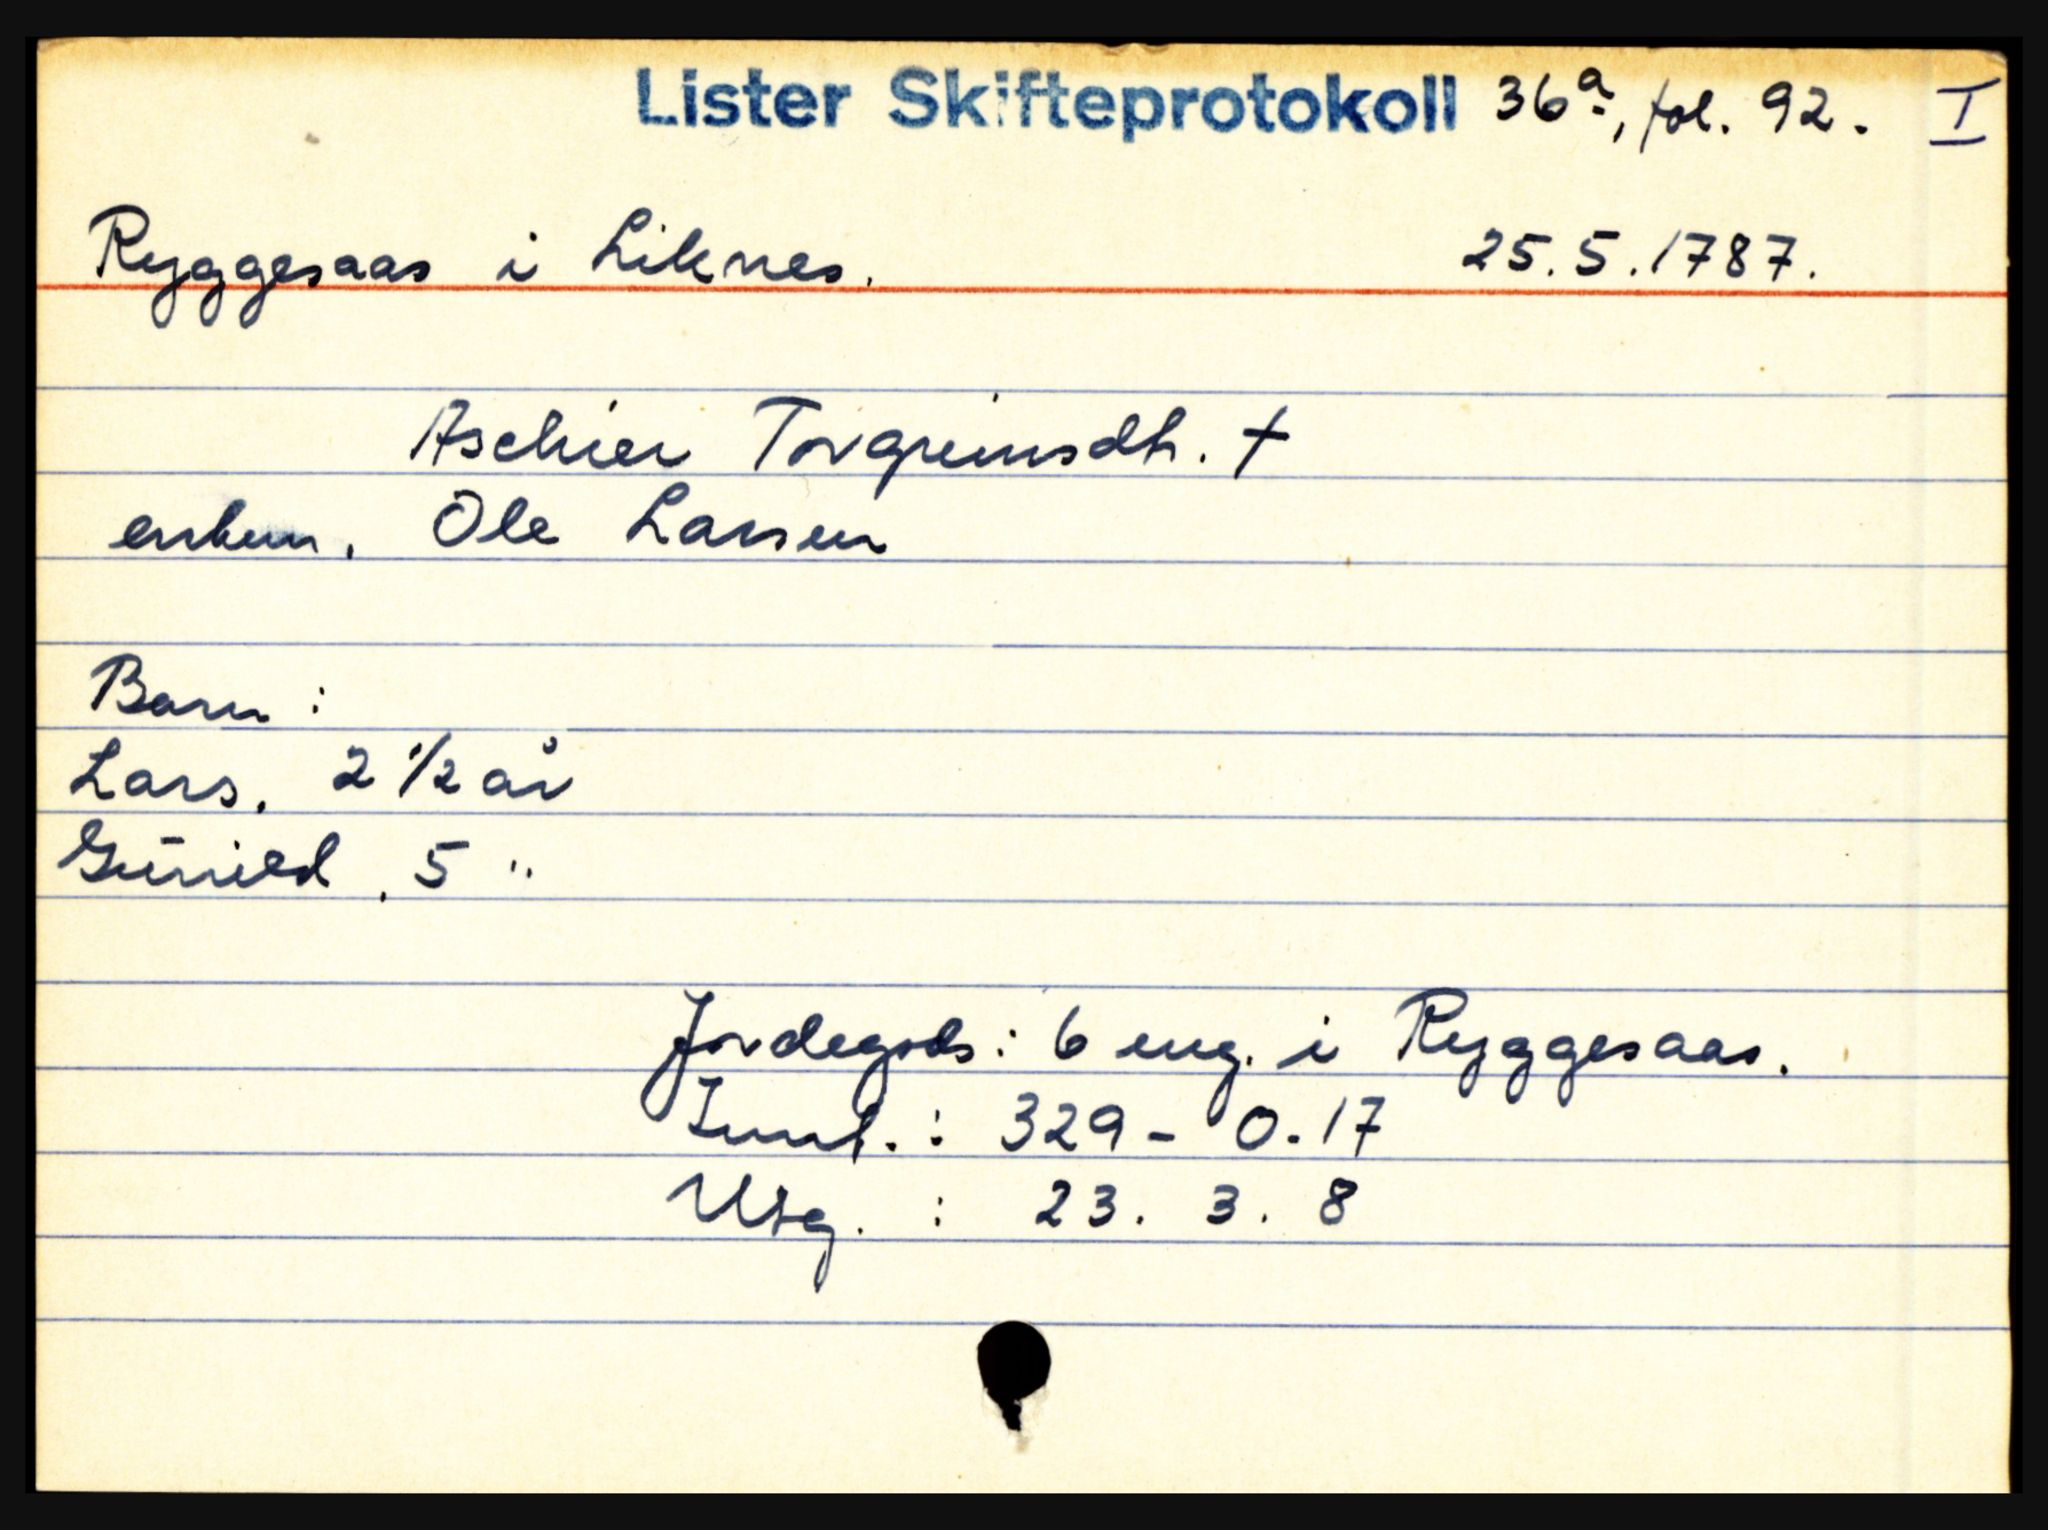 Lister Skifteprotokoll 36a, fol. 92. I
Ryggesaas i Liknes. 25.5.1787.
Aschier Torgrimsdtr. †
enkem. Ole Larsen
Barn:
Lars. 2 1/2 år
Gunild. 5 "
Jordegods: 6 eng. i Ryggesaas.
Innt. : 329 - 0.17
Utg. : 23. 3. 8